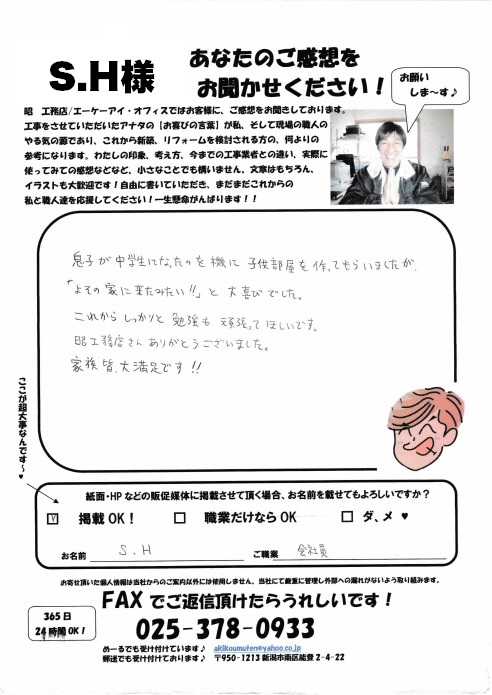 S.H様
あなたのご感想を
お聞かせください！
お願い
しま～す♪
昭　工務店/エーケーアイ・オフィスではお客様に、ご感想をお聞きしております。
工事をさせていただいたアナタの【お喜びの言葉】が私、そして現場の職人の
やる気の源であり、これから新築、リフォームを検討される方の、何よりの
参考になります。わたしの印象、考え方、今までの工事業者との違い、実際に
使ってみての感想などなど、小さなことでも構いません。文章はもちろん、
イラストも大歓迎です！自由に書いていただき、まだまだこれからの
私と職人達を応援してください！一生懸命がんばります！！
息子が中学生になったのを機に子供部屋を作ってもらいましたが、
「よその家に来たみたい!!」と大喜びでした。
これからしっかりと勉強も頑張ってほしいです。
昭工務店さんありがとうございました。
家族皆、大満足です!!
ここが超大事なんです～♥
紙面・HPなどの販促媒体に掲載させて頂く場合、お名前を載せてもよろしいですか？
☑ 掲載OK！ □ 職業だけならOK □ ダ、メ ♥
お名前 S.H ご職業 会社員
お寄せ頂いた個人情報は当社からのご案内以外には使用しません。当社にて厳重に管理し外部への漏れがないよう取り組みます。
FAXでご返信頂けたらうれしいです！
365日
24時間OK！
025-378-0933
めーるでも受け付けています♪ akikoumuten@yahoo.co.jp
郵送でも受け付けております♪ 〒950-1213新潟市南区能登2-4-22